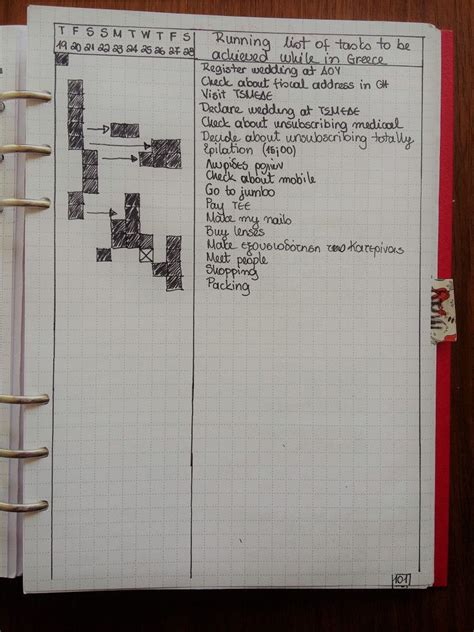 T F S S M T W T F S
19 20 21 22 23 24 25 26 27 28
Running list of tasks to be
achieved while in Greece
Register wedding at ΔΟΥ
Check about fiscal address in GH
Visit TSMEDE
Declare wedding at TSMEDE
Check about unsubscribing medical
Decide about unsubscribing totally
Epilation (15:00)
Λωρίδες
Check about mobile
Go to jumbo
Pay TEE
Make my nails
Buy lenses
Make εξουσιοδότηση Κατερίνας
Meet people
Shopping
Packing
101